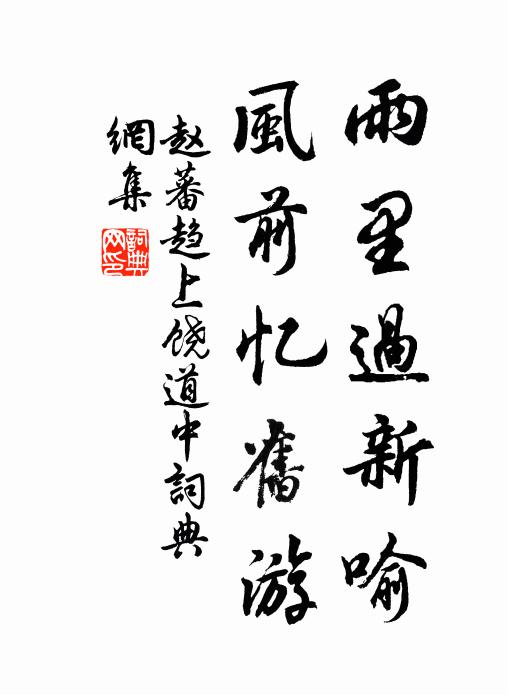 雨里過新喻
風前忆舊游
赵蕃趋上饶道中詞典
網集
詞典
网印